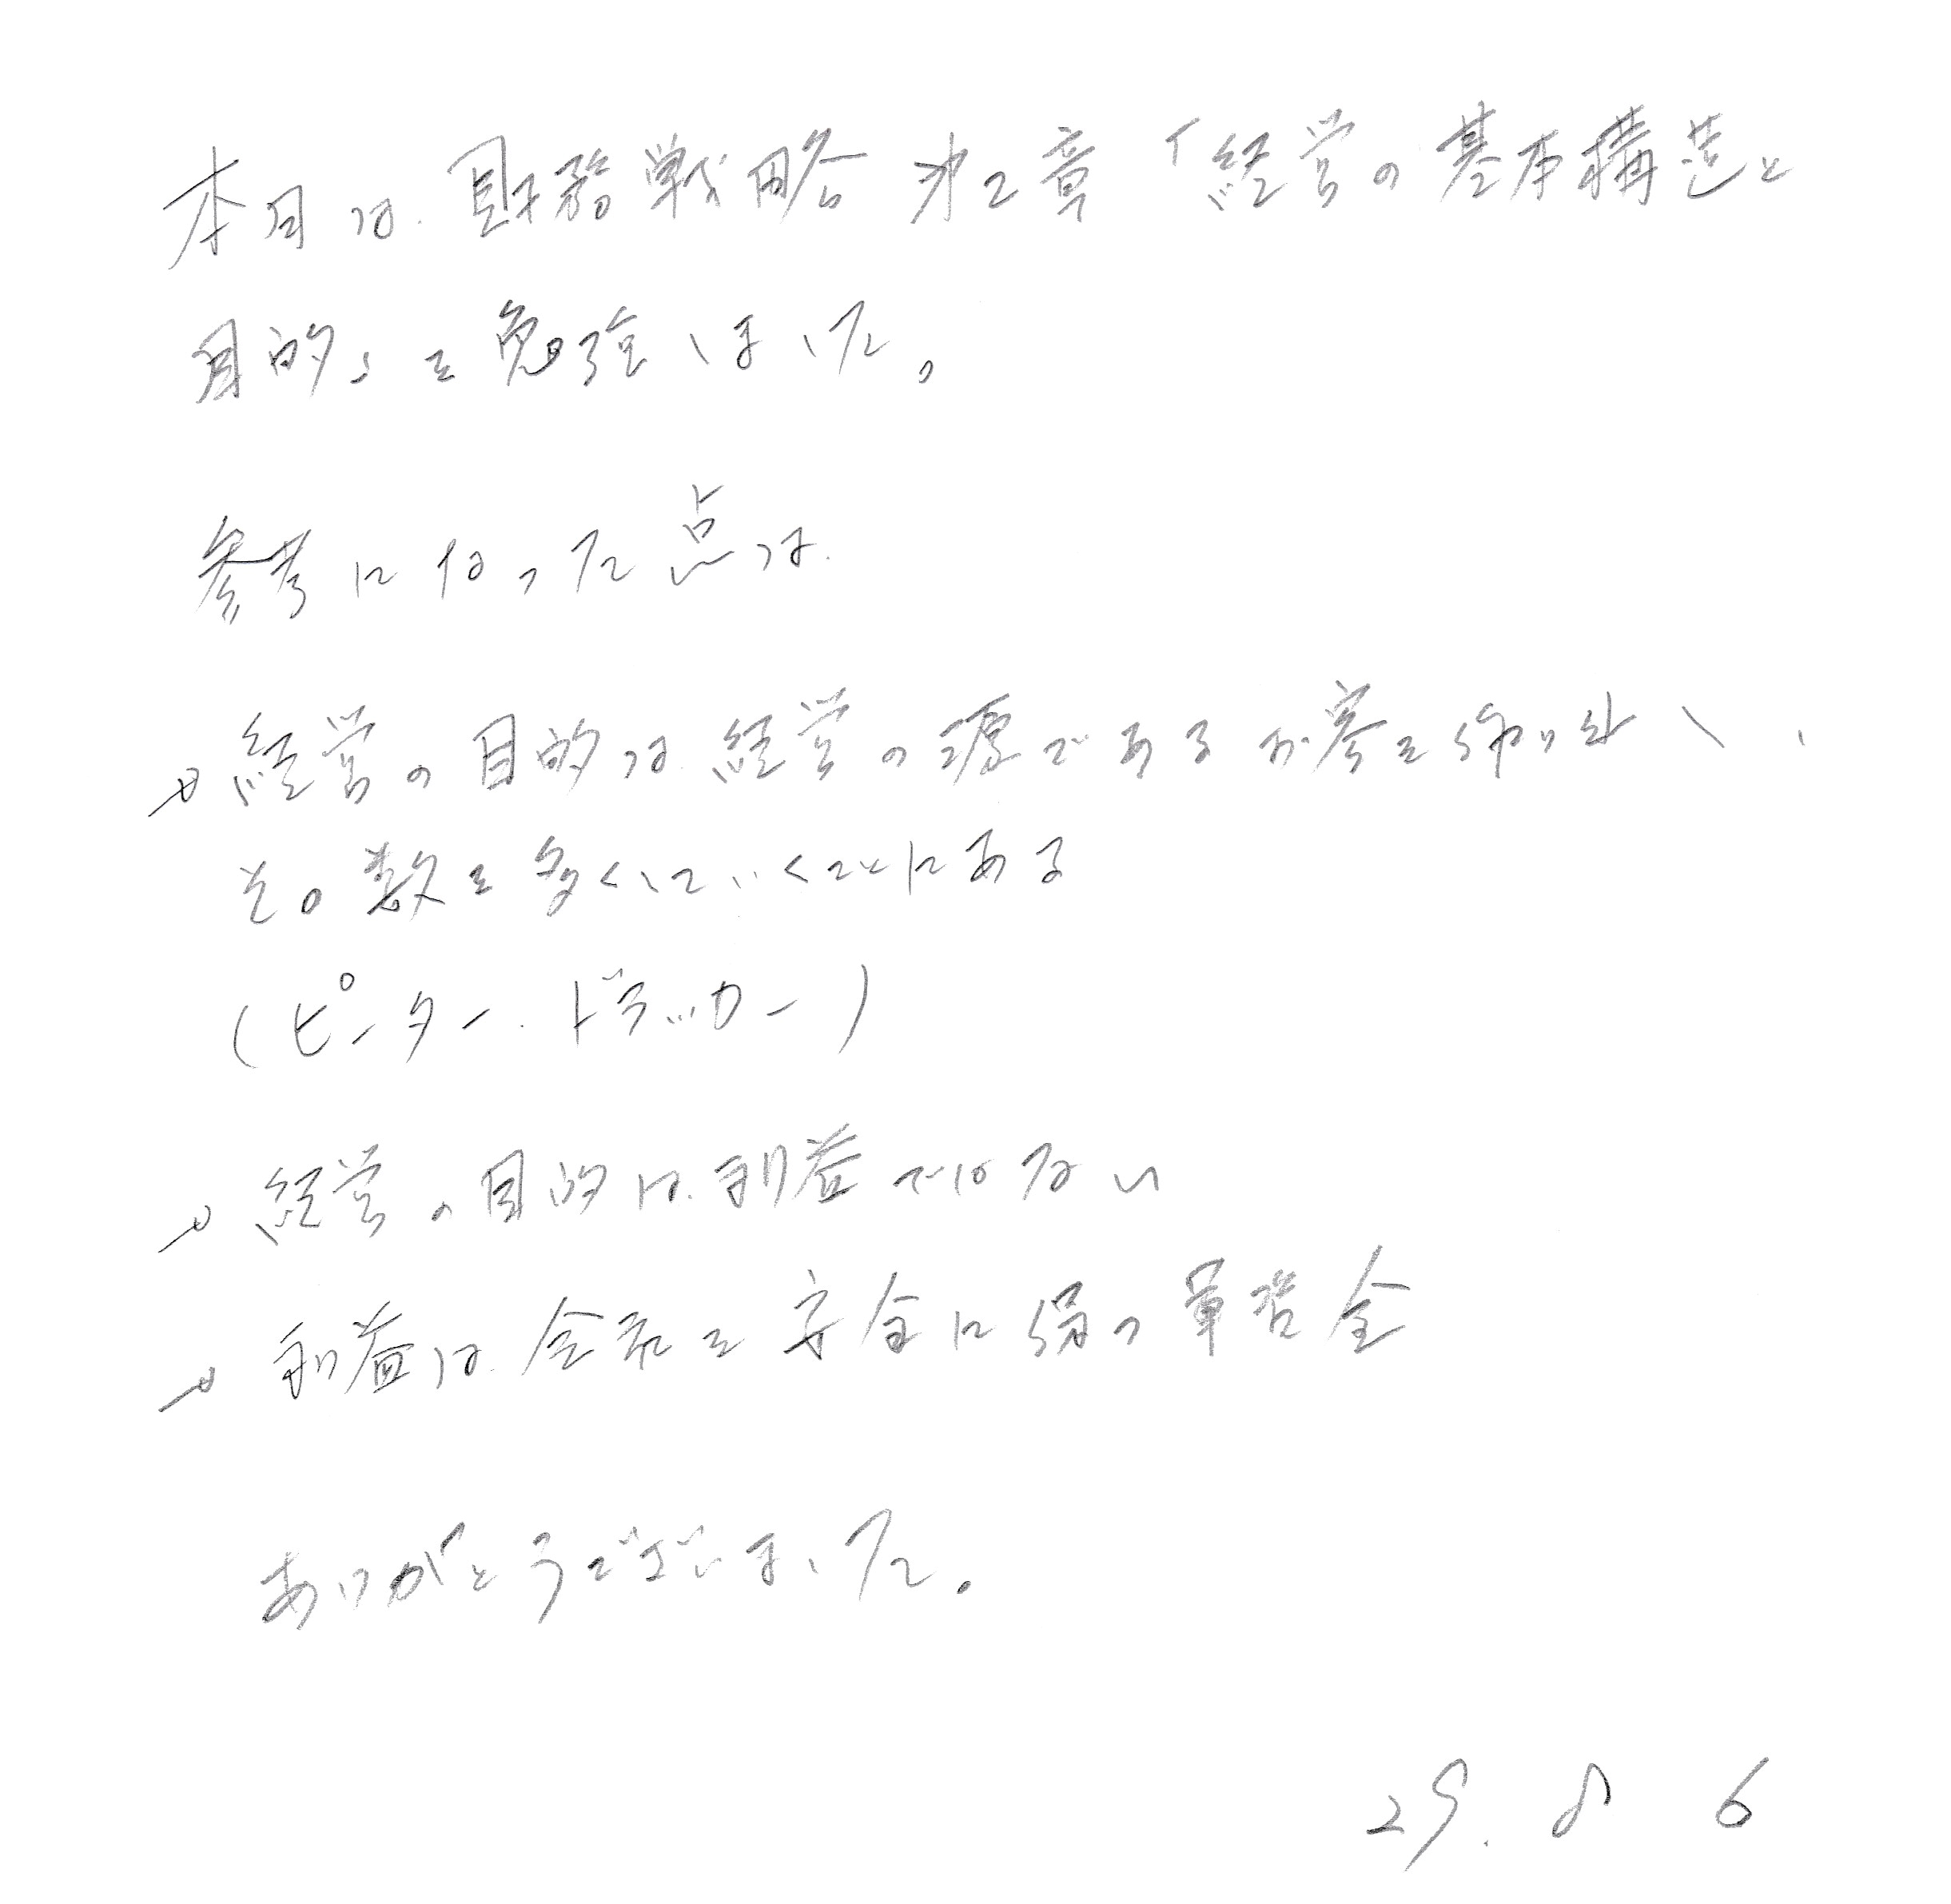 本日は、財務戦略 第2章「経営の基本構造と
目的」を勉強しました。
参考になった点は、
→経営の目的は、経営の源であるお客を作り出し、
その数を多くしていくことにある
(ピーター・ドラッカー)
→経営の目的は、利益ではない
→利益は、会社を安全に保つ軍資金
ありがとうございました。
29. 8 6